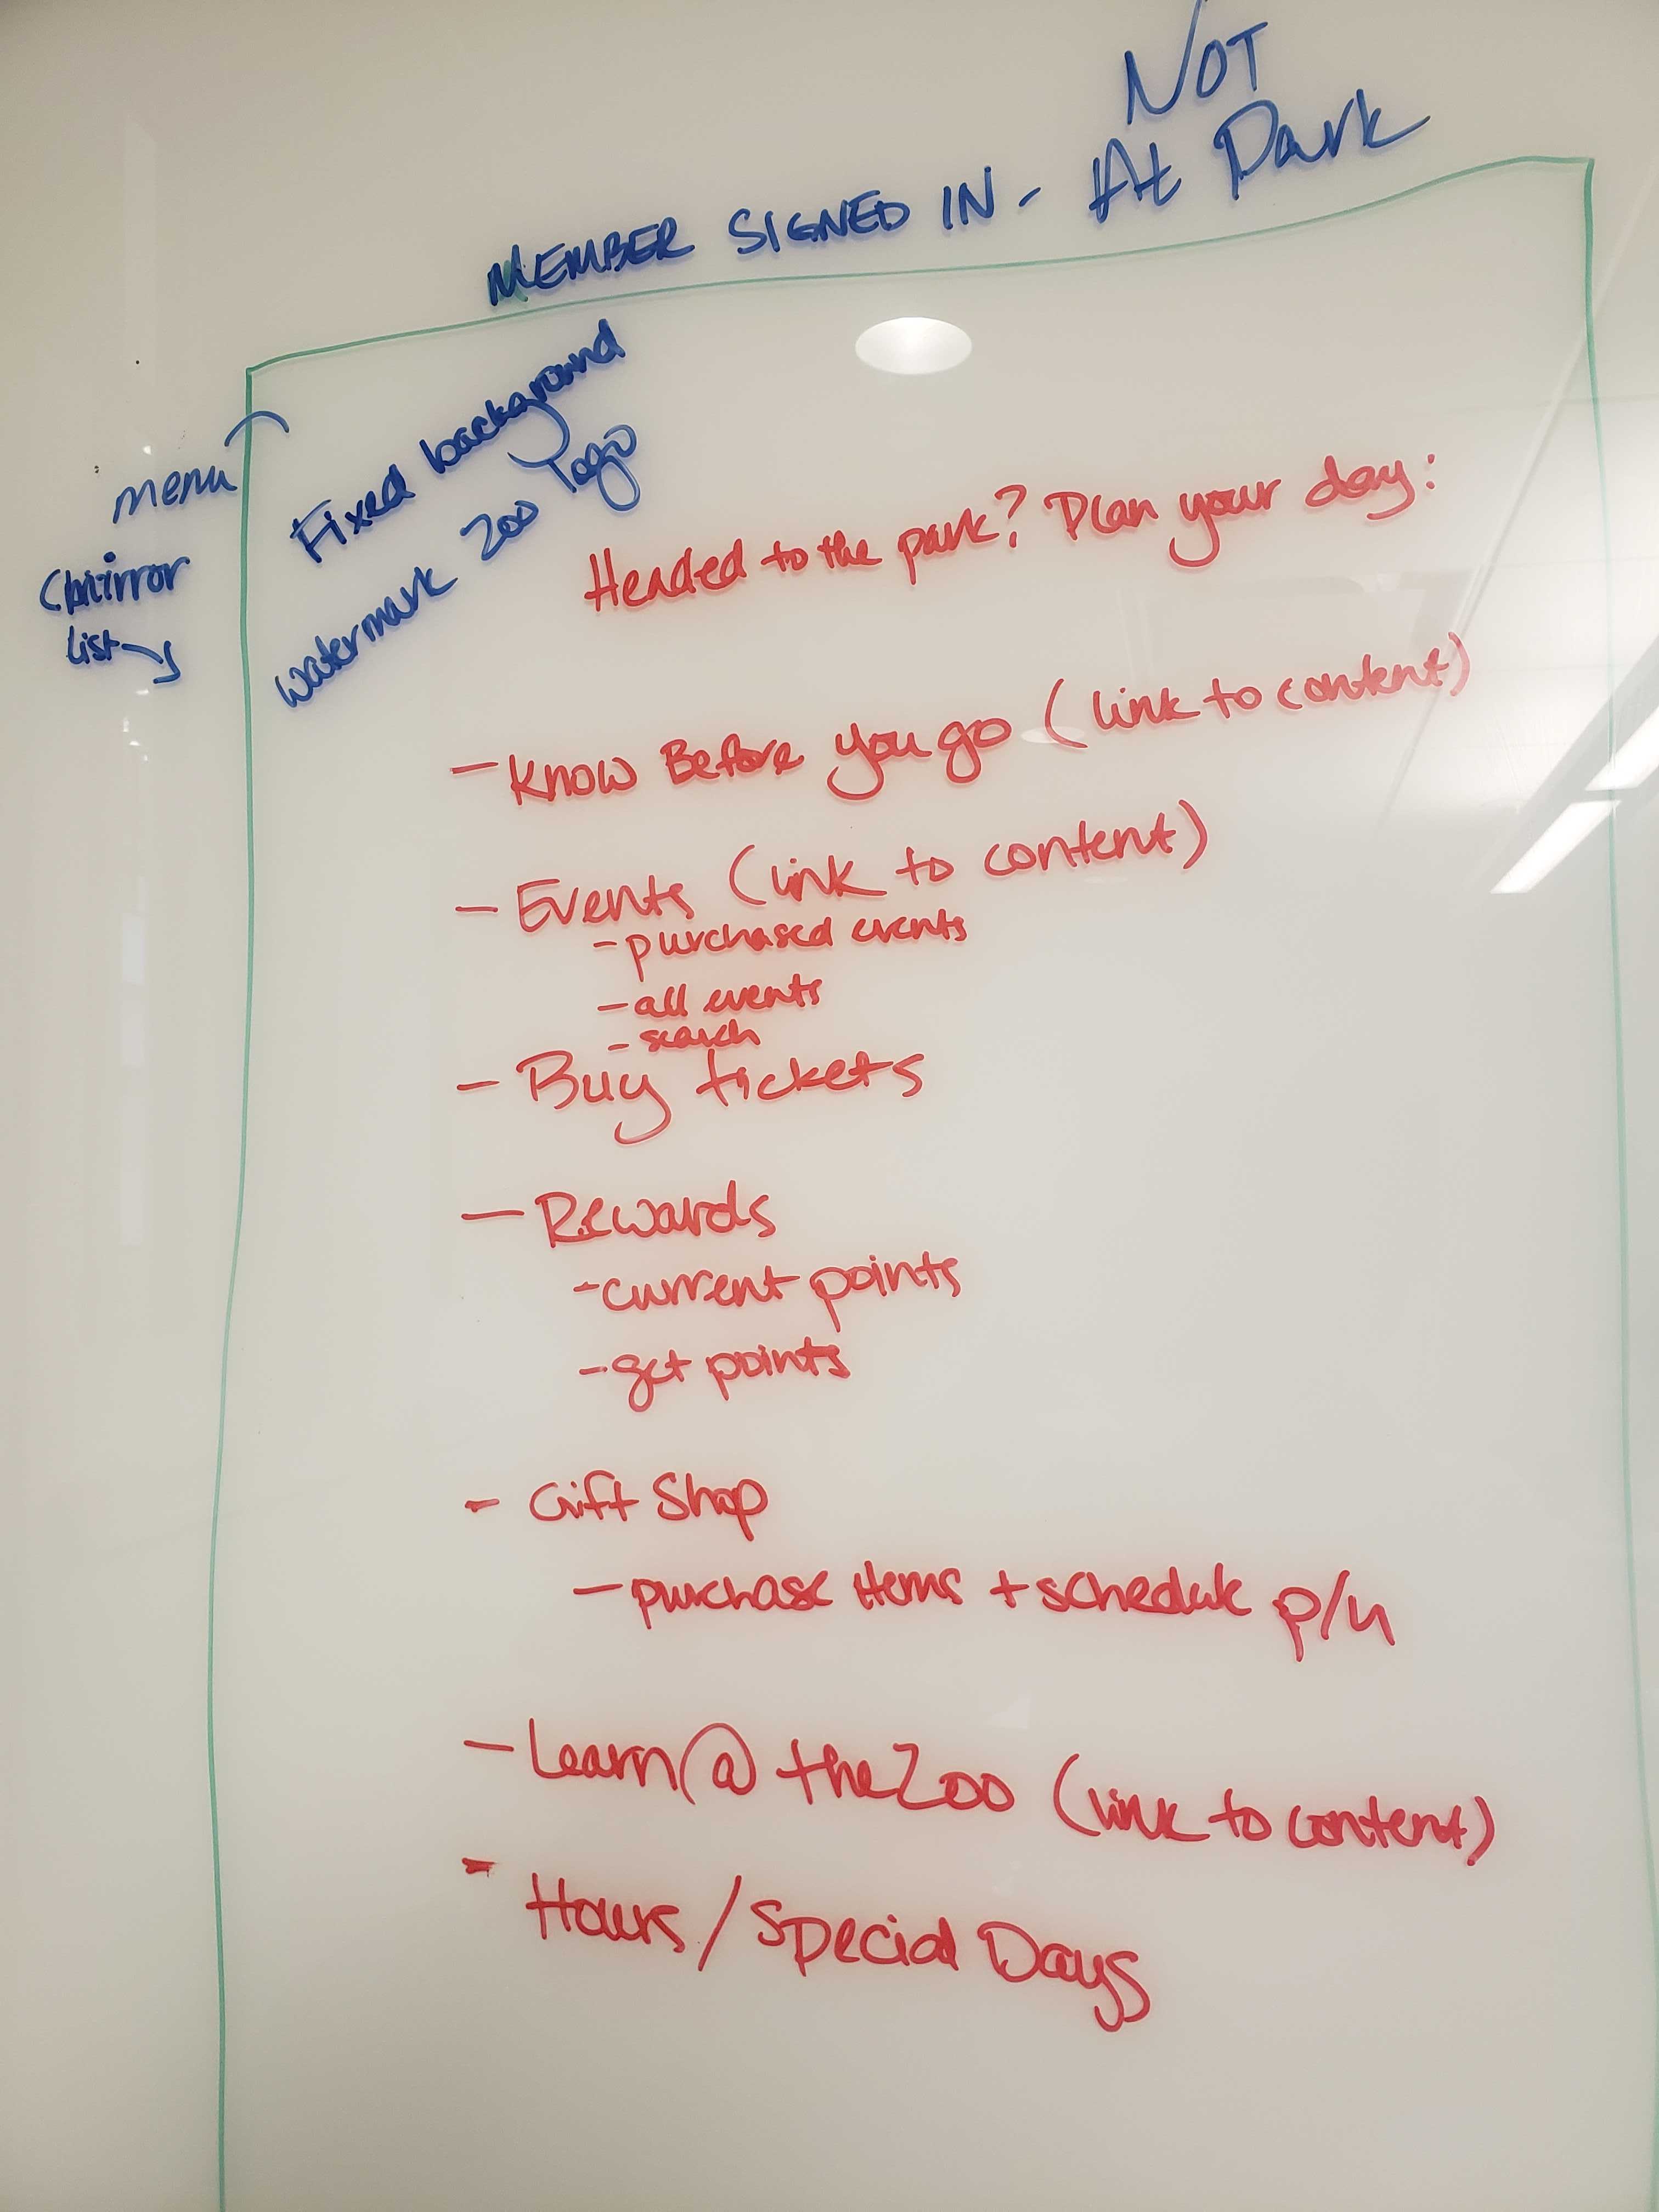 NOT
MEMBER SIGNED IN - At Park
menu
mirror
list
Fixed background
watermark zoo logo
Headed to the park? Plan your day:
- Know Before you go (link to content)
- Events (link to content)
- purchased events
- all events
- search
- Buy tickets
- Rewards
- current points
- get points
- Gift Shop
- purchase items + schedule p/u
- Learn @ the Zoo (link to content)
- Hours / Special Days